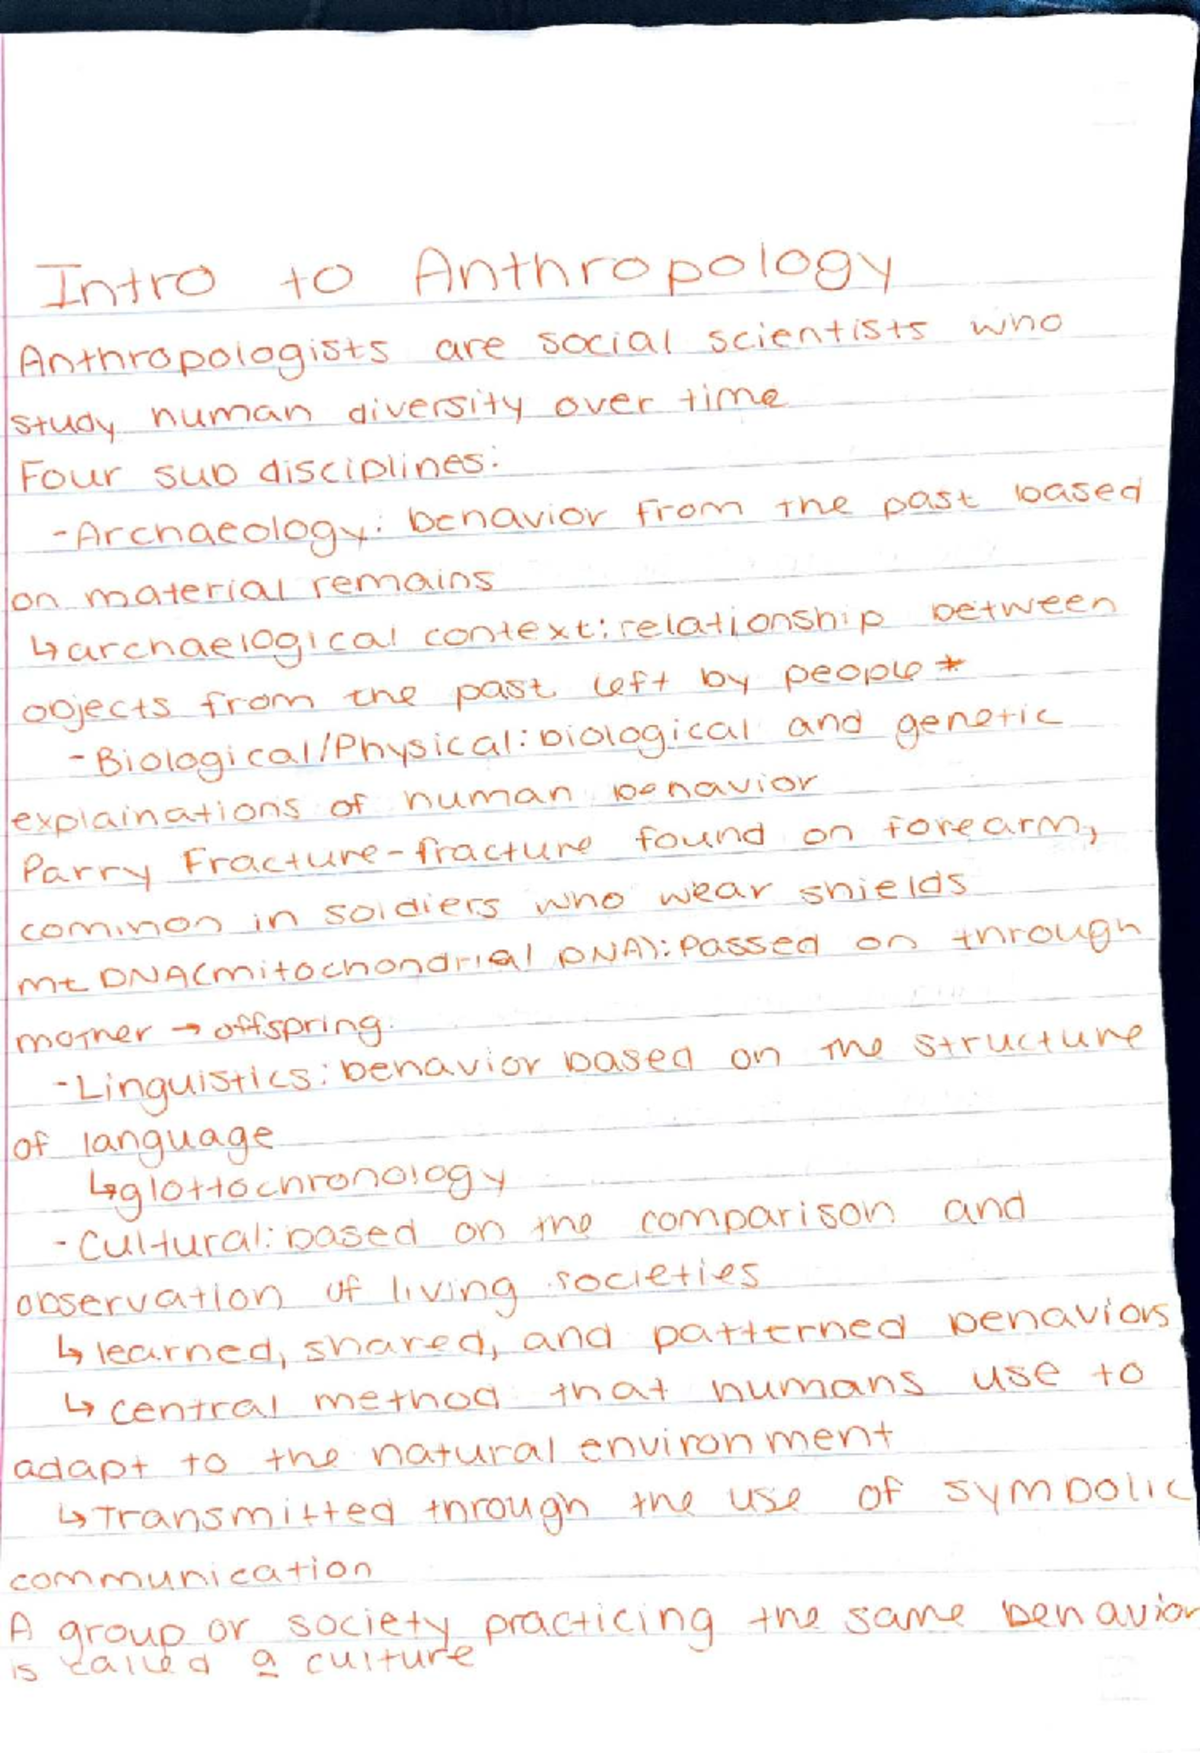 Intro to Anthropology
Anthropologists are social scientists who
study human diversity over time
Four sub disciplines:
-Archaeology: behavior from the past based
on material remains
↳archaelogical context: relationship between
objects from the past left by people*
-Biological/Physical: biological and genetic
explainations of human behavior
Parry Fracture-fracture found on forearm,
common in soldiers who wear shields
mt DNA(mitochondrial DNA): Passed on through
mother → offspring.
-Linguistics: behavior based on the structure
of language
↳glottochronology
-Cultural: based on the comparison and
observation of living societies
↳learned, shared, and patterned behaviors
↳central method that humans use to
adapt to the natural environment
↳Transmitted through the use of symbolic
communication
A group or society practicing the same behavior
is called a culture